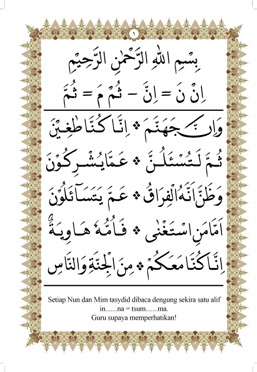 ١
بِسْمِ اللهِ الرَّحْمٰنِ الرَّحِيْمِ
اِنْ نَ = اِنَّ - ثُمْ مَ = ثُمَّ
وَاِنَّ جَهَنَّمَ * اِنَّا كُنَّا طٰغِيْنَ
ثُمَّ لَتُسْئَلُنَّ * عَمَّا يُشْرِكُوْنَ
وَظَنَّ اَنَّهُ الْفِرَاقُ * عَمَّ يَتَسَآئَلُوْنَ
اَمَّا مَنِ اسْتَغْنٰى * فَاُمُّهٗ هَاوِيَةٌ
اِنَّا كُنَّا مَعَكُمْ * مِنَ الْجِنَّةِ وَالنَّاسِ
Setiap Nun dan Mim tasydid dibaca dengung sekira satu alif
in......na = tsum......ma.
Guru supaya memperhatikan!